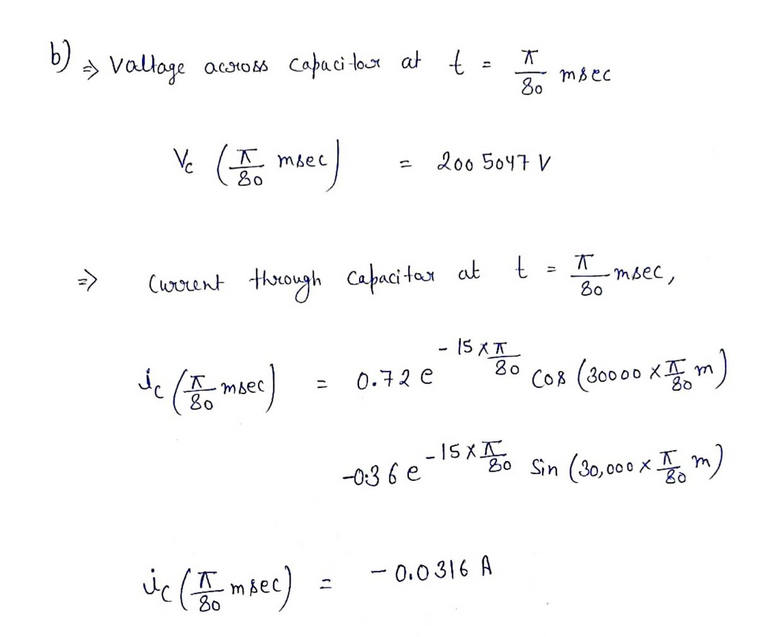 b) ⇒ Voltage across capacitor at t = π/80 msec
Vc (π/80 msec) = 200 5047 V
⇒ Current through capacitor at t = π/80 msec,
ic (π/80 msec) = 0.72 e^(-15×π/80) cos (30000 × π/80 m)
-0.36 e^(-15×π/80) sin (30,000 × π/80 m)
ic (π/80 msec) = -0.0316 A